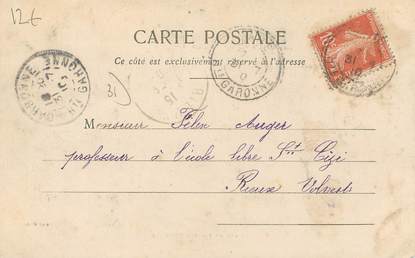 12€
CARTE POSTALE
Ce côté est exclusivement réservé à l'adresse
Hte GARONNE
31
Monsieur Félix Auger
professeur à l'école libre St Cizi
Rieux Volvestre